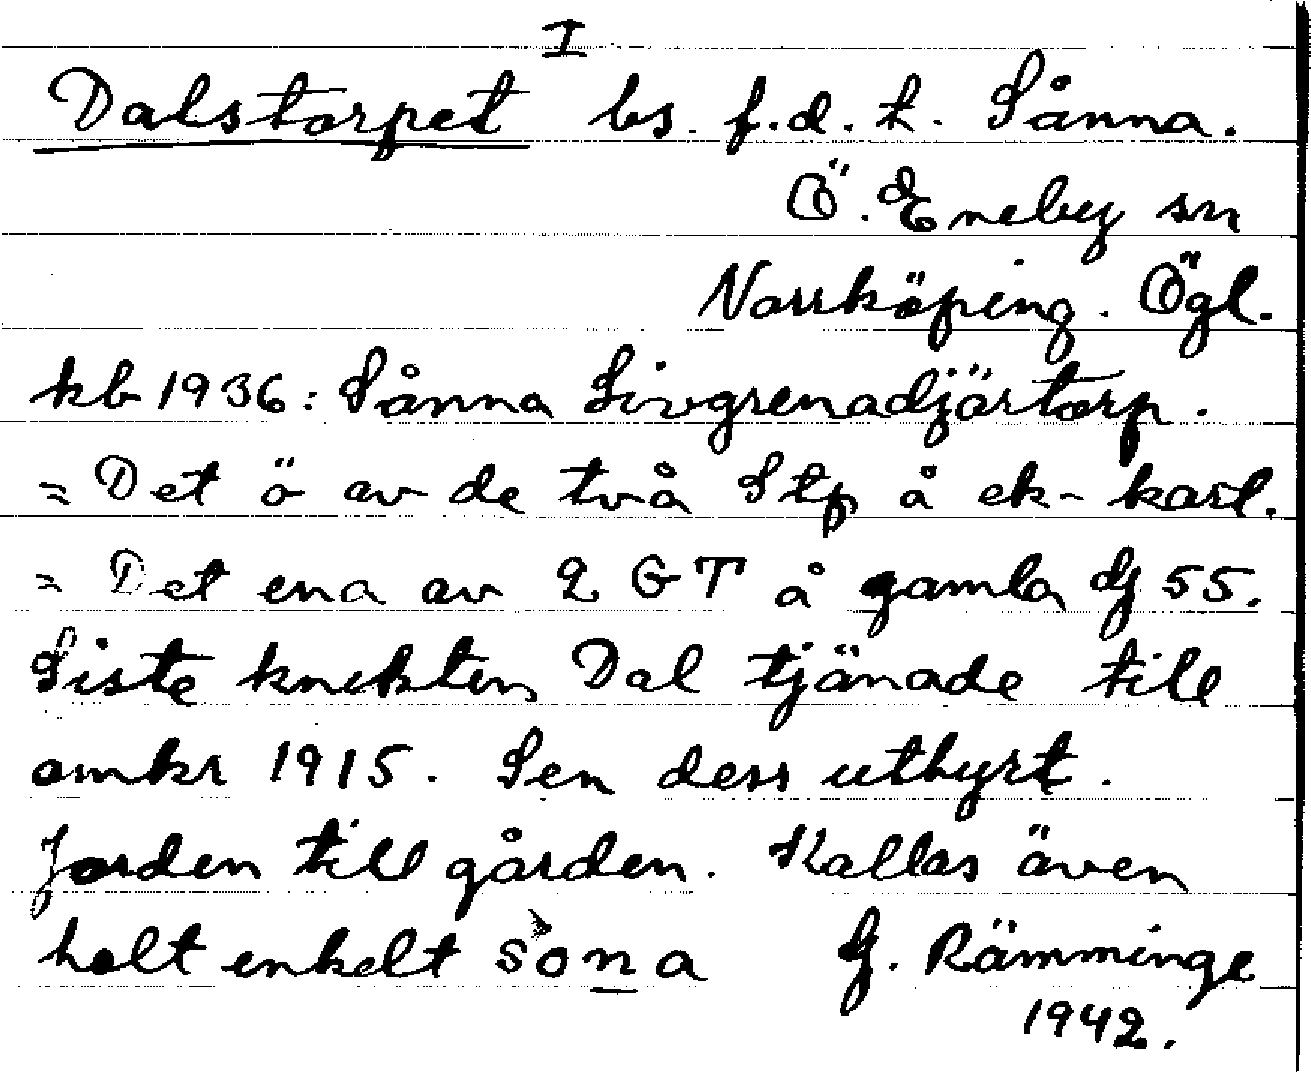 I
Dalstorpet bs. f.d. t. Sånna.
Ö. Eneby sn
Norrköping. Ögl.
kb 1936: Sånna Livgrenadjärtorp.
= Det ö av de två Stp å ek-kart.
= Det ena av 2 GT å gamla Gj 55.
Siste knekten Dal tjänade till
omkr 1915. Sen dess uthyrt.
Jorden till gården. Kallas även
helt enkelt sòna G. Rämminge
1942.